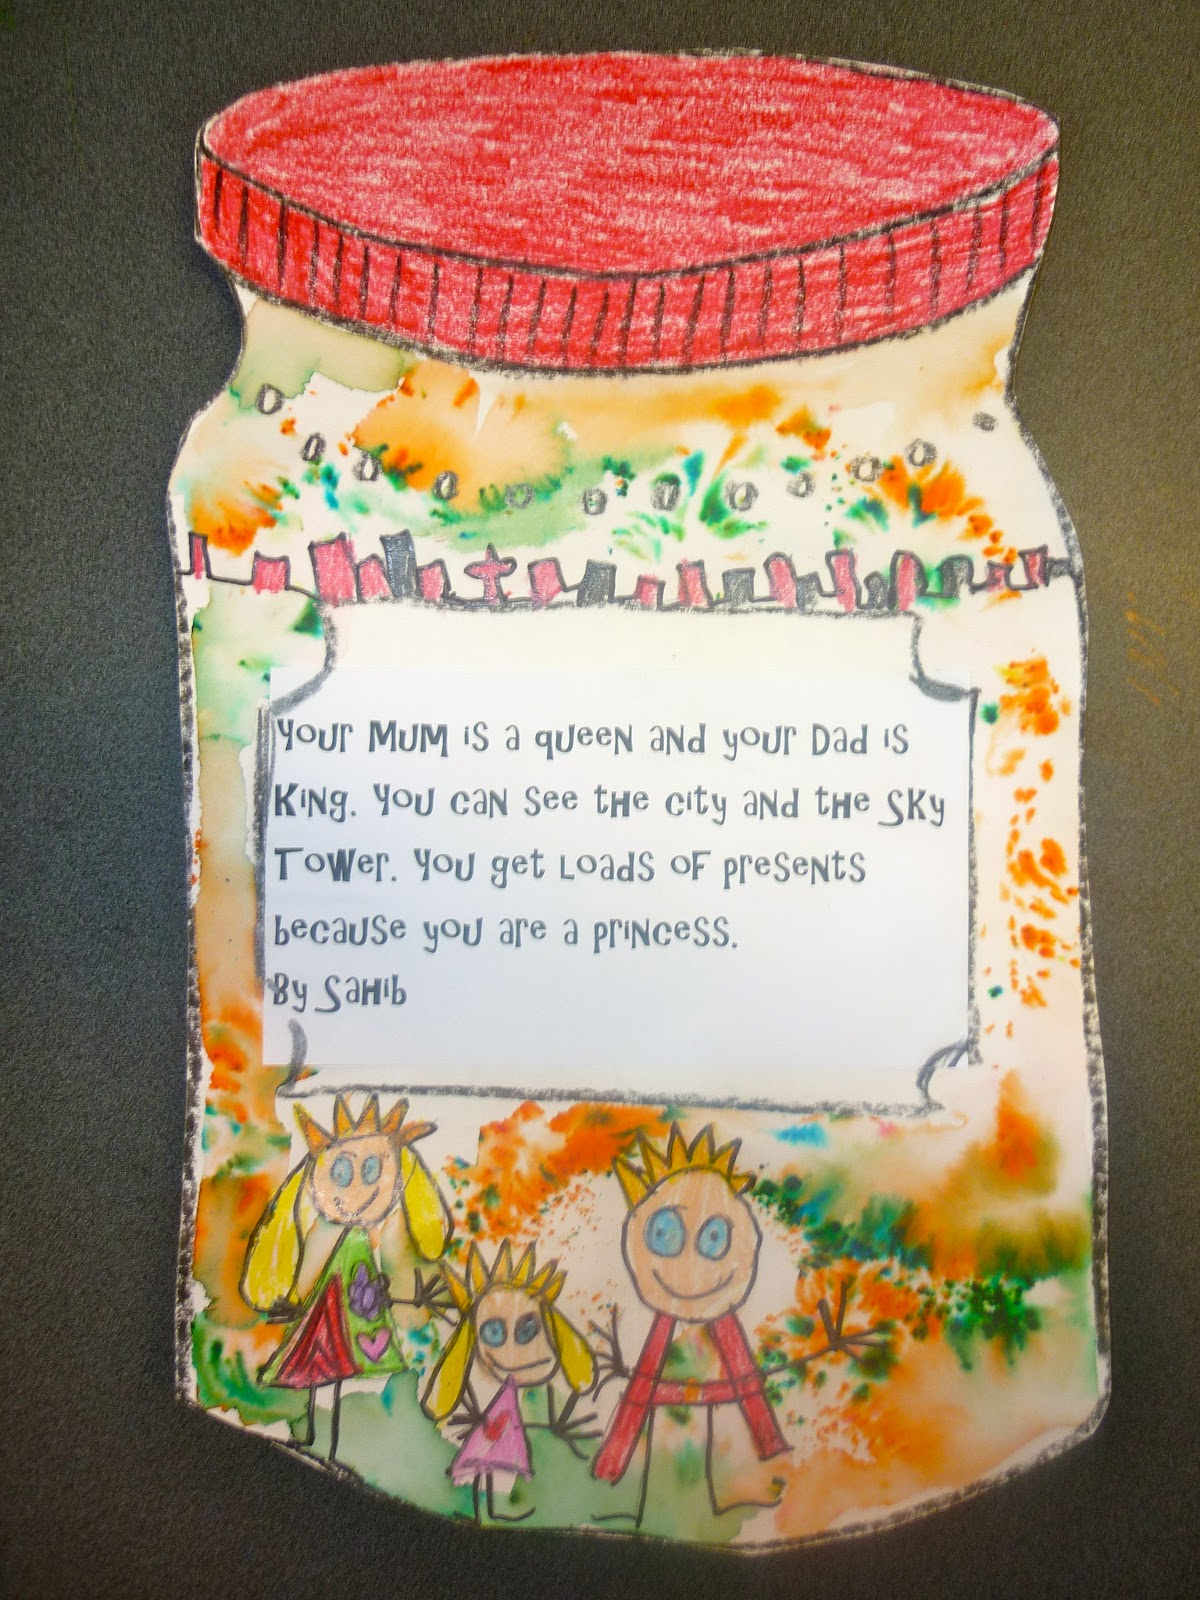 Your Mum is a queen and your Dad is
King. You can see the city and the Sky
Tower. You get loads of presents
because you are a princess.
By Sahib